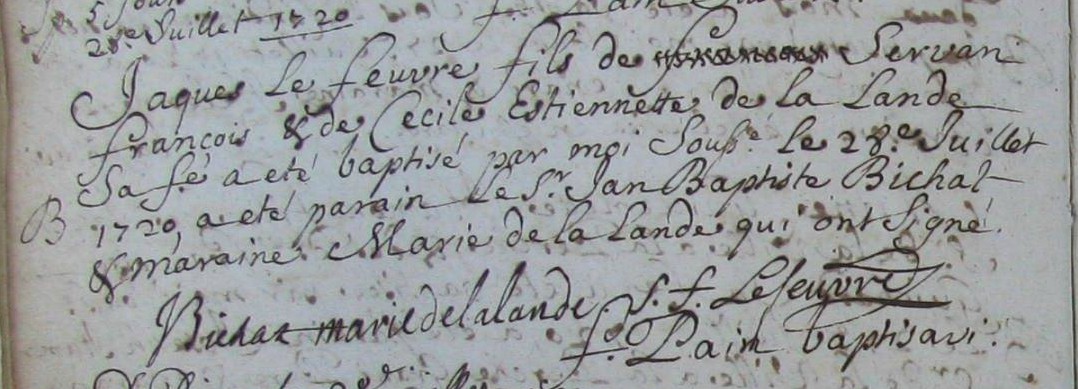 28e Juillet 1720
Jaques Le feuvre fils de Servan
françois & de Cecile Estiennette de la Lande
Sa fe. a eté baptisé par moi Soubse. le 28.e Juillet
B 1720, a eté parain le Sr. Jan Baptiste Bichat
& maraine Marie de la Lande qui ont Signé.
Bichat marie de la lande S. f. Lefeuvre
f. Pain baptisavi.